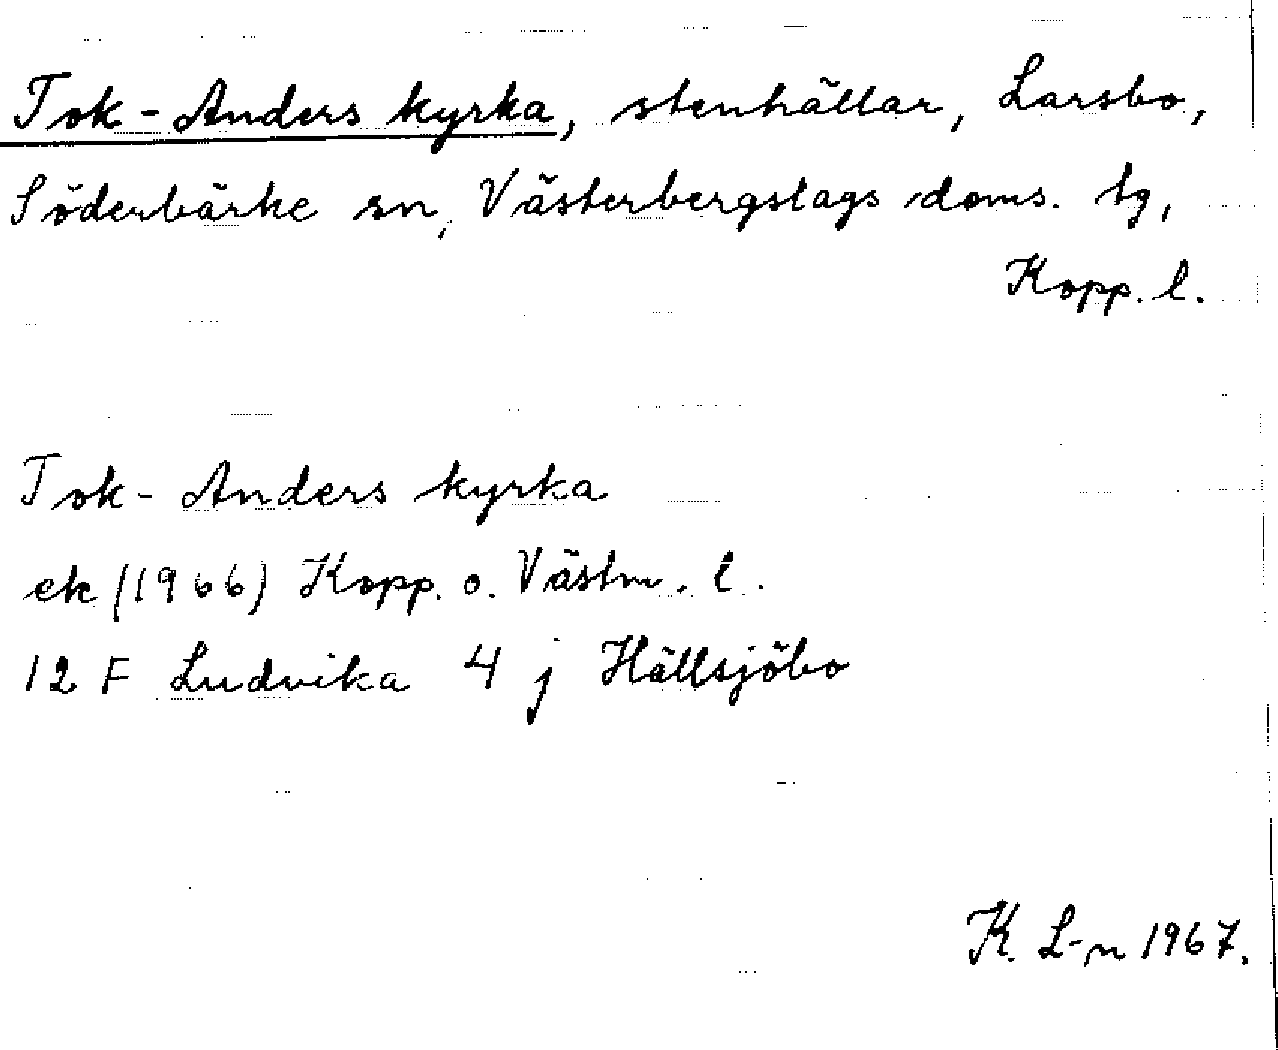 Tok-Anders kyrka, stenhällar, Larsbo,
Söderbärke sn, Västerbergslags doms. tg,
Kopp. l.
Tok-Anders kyrka
ek (1966) Kopp. o. Västm. l.
12 F Ludvika 4 j Hällsjöbo
K. L-n 1967.